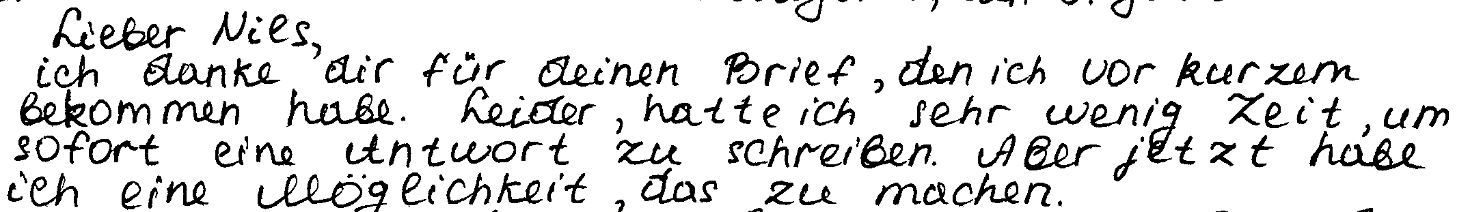 Lieber Nils,
ich danke dir für deinen Brief, den ich vor kurzem
bekommen habe. Leider, hatte ich sehr wenig Zeit, um
sofort eine Antwort zu schreiben. Aber jetzt habe
ich eine Möglichkeit, das zu machen.